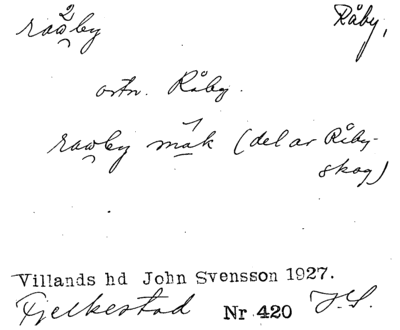 rawby Råby,
ortn. Råby.
rawby mak (del av Råby-
skog)
Villands hd John Svensson 1927.
Fjelkestad Nr 420 J.S.